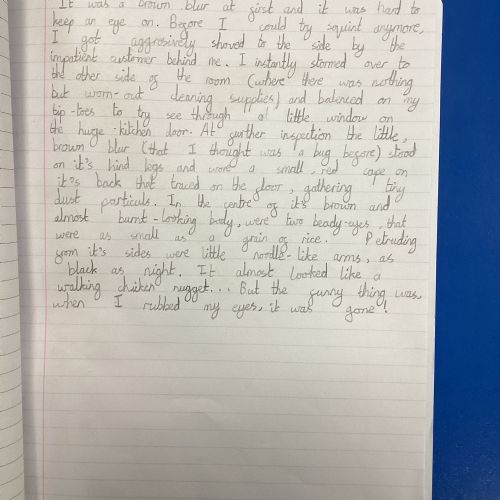 It was a brown blur at first and it was hard to
keep an eye on. Before I could try squint anymore,
I got aggrosively shoved to the side by the
impatient customer behind me. I instantly stormed over to
the other side of the room (where there was nothing
but worn-out cleaning supplies) and balenced on my
tip-toes to try see through a little window on
the huge-kitchen door. At further inspection the little,
brown blur (that I thought was a bug before) stood
on it's hind legs and wore a small, red cape on
it's back that traced on the floor, gathering tiny
dust particuls. In the centre of it's brown and
almost burnt-looking body, were two beady-eyes, that
were as small as a grain of rice. Petruding
from it's sides were little noodle-like arms, as
black as night. It almost looked like a
walking chicken nugget... But the funny thing was,
when I rubbed my eyes, it was gone!